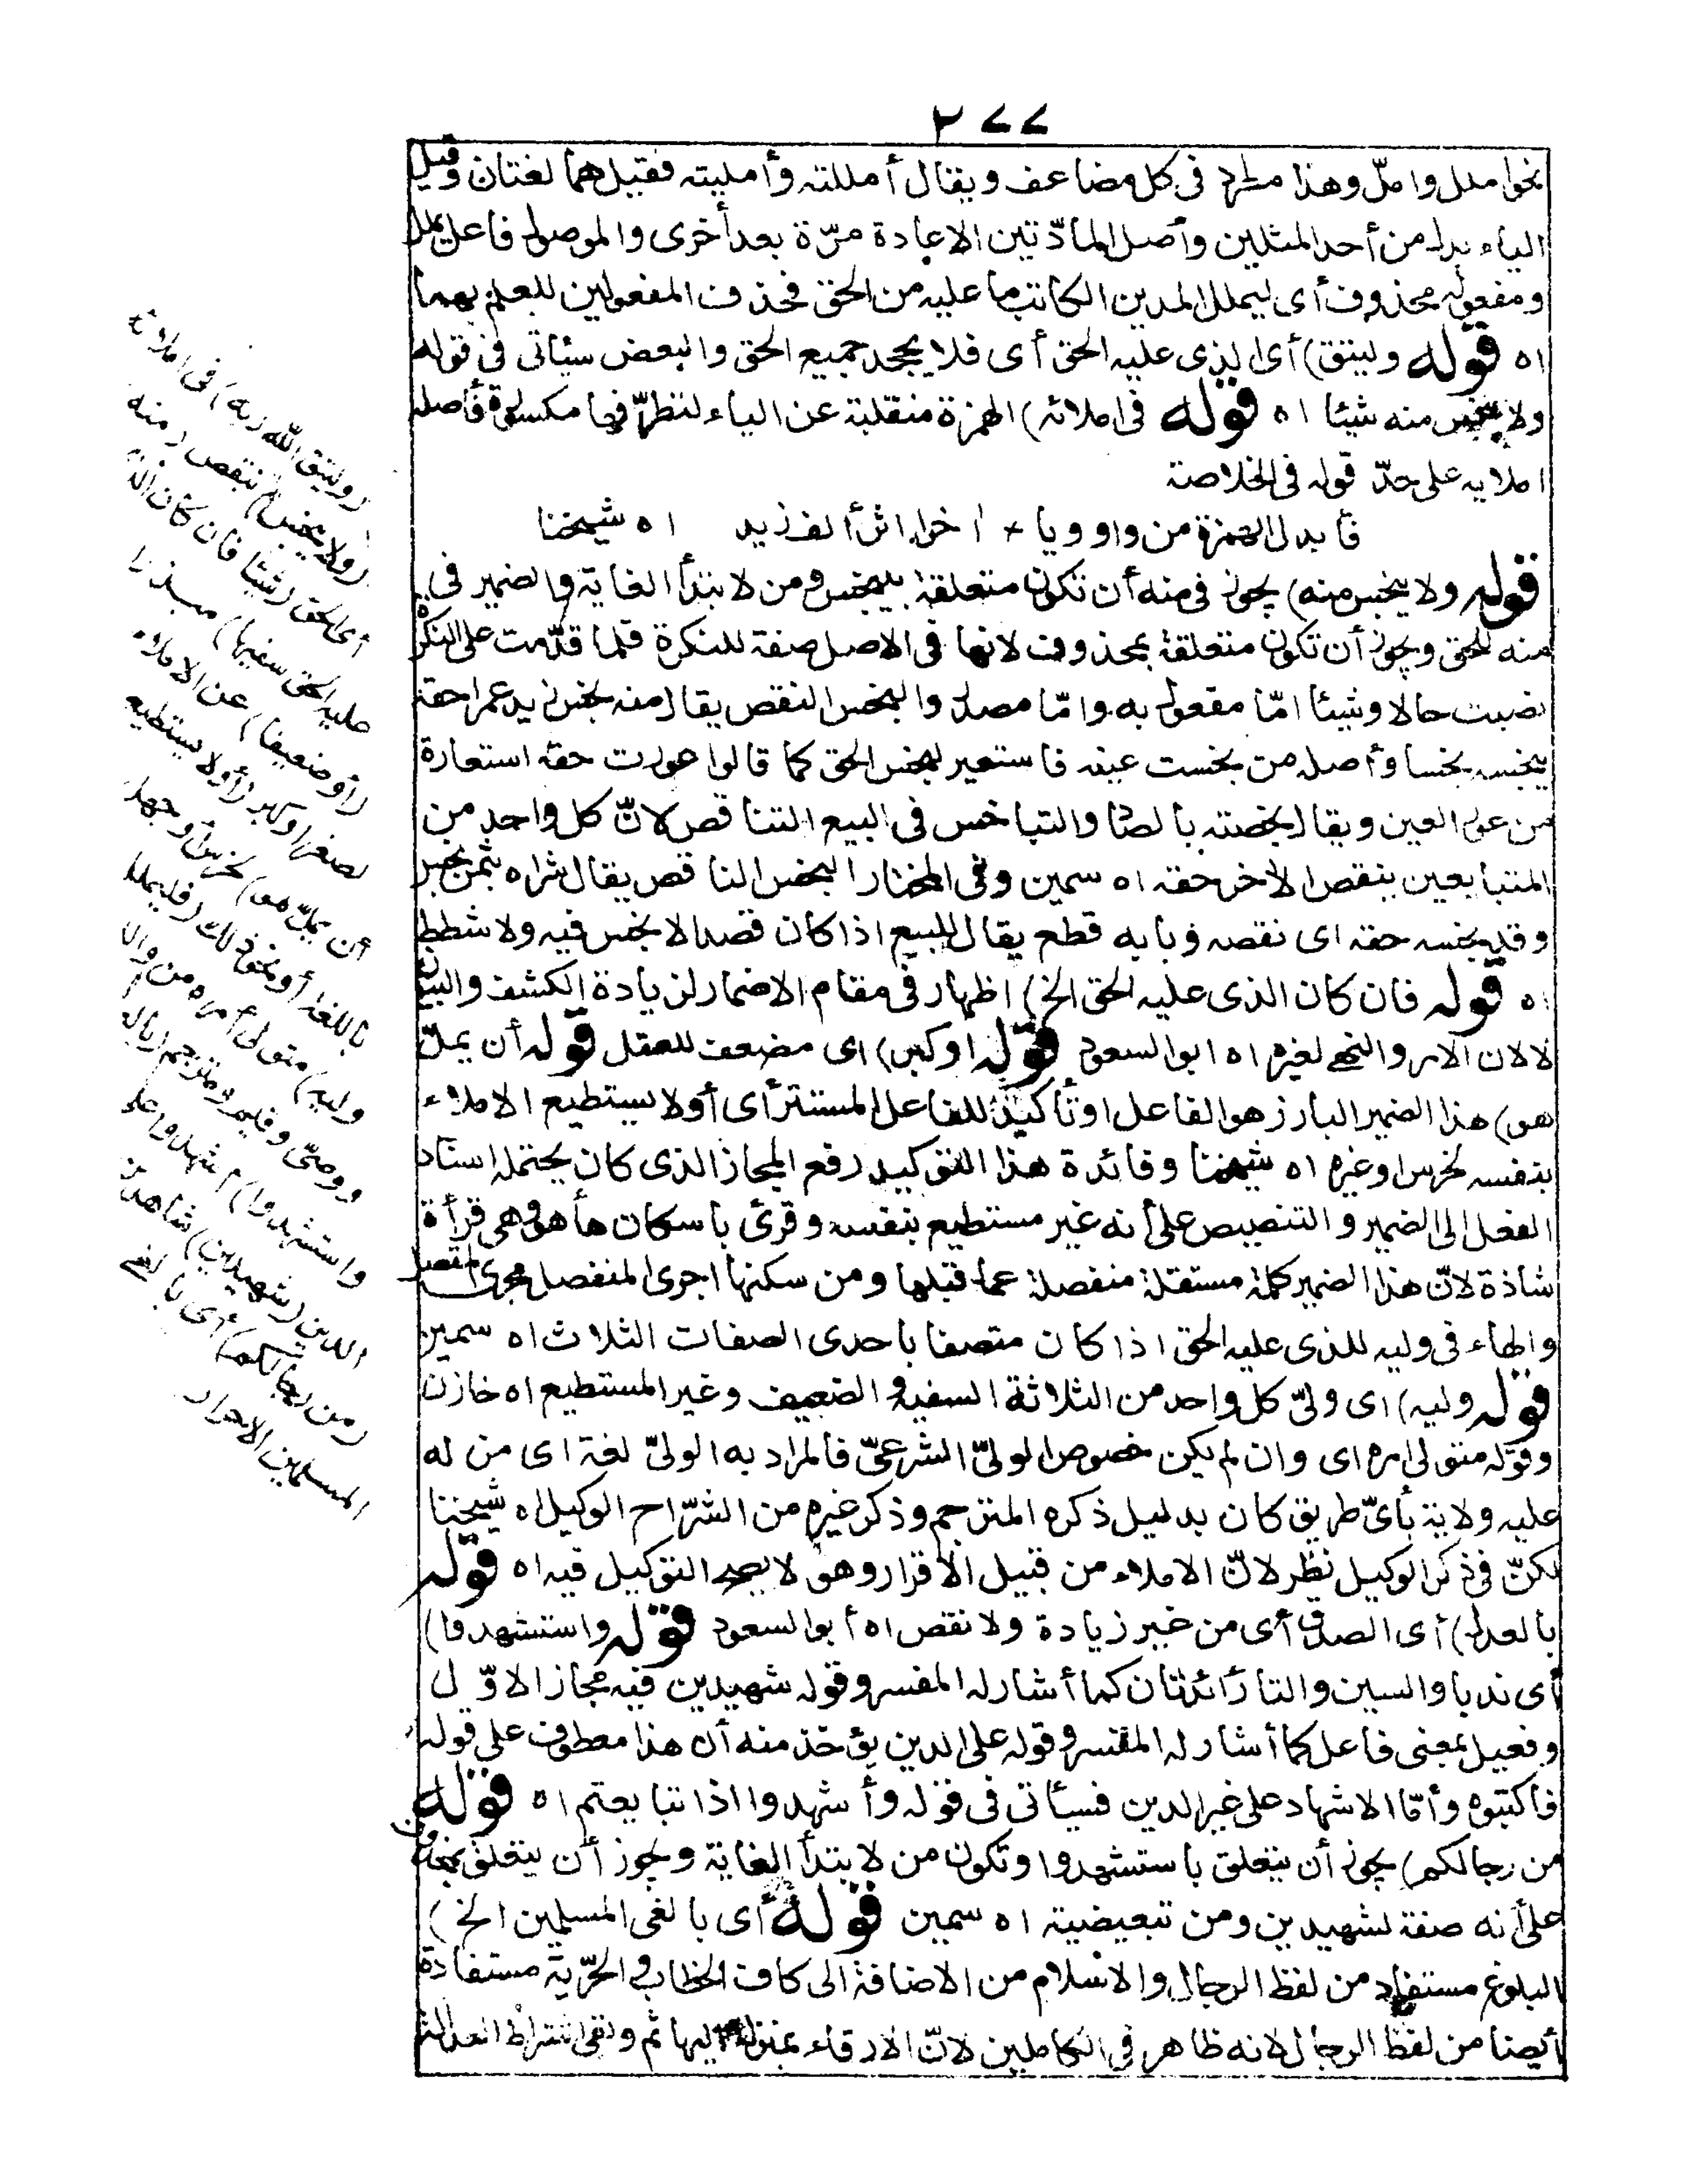 ٢٧٧
نحو املل وامل وهذا مطرد فى كل مضاعف ويقال أمللته وأمليته فقيل هما لغتان وقيل
الياء بدل من أحد المثلين وأصل المادّتين الاعادة مرّة بعد أخرى والموصول فاعل يملل
ومفعوله محذوف أى ليملل المدين الكاتب ما عليه من الحق فحذف المفعولين للعلم بهما
اه قوله وليتق) أى الذى عليه الحق أى فلا يجحد جميع الحق والبعض سيأتى فى قوله
ولا يبخس منه شيئا اه قوله فى املائه) الهمزة منقلبة عن الياء لتطرّفها مكسورة فأصله
املايه على حدّ قوله فى الخلاصة
فأبدل الهمزة من واو ويا * آخرا اثر ألف زيد اه شيخنا
قوله ولا يبخس منه) يجوز فى منه أن تكون متعلقة بيبخس ومن لابتدأ الغاية والضمير فى
منه للحق ويجوز أن تكون متعلقة بمحذوف لانها فى الاصل صفة للنكرة فلما قدّمت على النكرة
نصبت حالا وشيئا امّا مفعول به وامّا مصدر والبخس النقص يقال منه بخس زيد عمرا حقه
يبخسه بخسا وأصله من بخست عينه فاستعير لبخس الحق كما قالوا عورت حقه استعارة
من عور العين ويقال بخصته بالصاد والتباخس فى البيع التناقص لانّ كل واحد من
المتبايعين ينقص الآخر حقه اه سمين وفى المختار البخس الناقص يقال شراه بثمن بخس
وقد بخسه حقه اى نقصه وبابه قطع يقال للبيع اذا كان قصدا لا بخس فيه ولا شطط
اه قوله فان كان الذى عليه الحق الخ) اظهار فى مقام الاضمار لزيادة الكشف والبيان
لا لان الامر والنهى لغيره اه ابو السعود قوله او كبر) اى مضعف للعقل قوله أن يملّ
هو) هذا الضمير البارز هو الفاعل او تأكيد للفاعل المستتر أى أو لا يستطيع الاملاء
بنفسه لخرس او غيره اه شيخنا وفائدة هذا التوكيد رفع المجاز الذى كان يحتمله اسناد
الفعل الى الضمير والتنصيص على أنه غير مستطيع بنفسه وقرئ باسكان هاء هو وهى قرأة
شاذة لانّ هذا الضمير كلمة مستقلة منفصلة عما قبلها ومن سكنها اجرى المنفصل مجرى المتصل
والهاء فى وليه للذى عليه الحق اذا كان متصفا باحدى الصفات الثلاث اه سمين
قوله وليه) اى ولىّ كل واحد من الثلاثة السفيه و الضعيف وغير المستطيع اه خازن
وقوله متولى امره اى وان لم يكن خصوص الولىّ الشرعىّ فالمراد به الولىّ لغة اى من له
عليه ولاية بأىّ طريق كان بدليل ذكره المترجم وذكر غيره من الشرّاح الوكيل اه شيخنا
لكنّ فى ذكر الوكيل نظر لانّ الاملاء من قبيل الاقرار وهو لا يصح التوكيل فيه اه قوله
بالعدل) أى الصدق أى من غير زيادة ولا نقص اه أبو السعود قوله واستشهدوا)
أى ندبا والسين والتا زائدتان كما أشار له المفسر وقوله شهيدين فيه مجاز الاوّل
وفعيل بمعنى فاعل كما أشار له المفسر وقوله على الدين يؤخذ منه أن هذا معطوف على قوله
فاكتبوه وأمّا الاشهاد على غير الدين فسيأتى فى قوله وأشهدوا اذا تبايعتم اه قوله
من رجالكم) يجوز أن يتعلق باستشهدوا وتكون من لابتدأ الغاية ويجوز أن يتعلق بمحذوف
على أنه صفة لشهيدين ومن تبعيضية اه سمين قوله أى بالغى المسلمين الخ)
البلوغ مستفاد من لفظ الرجال والاسلام من الاضافة الى كاف الخطاب والحرّية مستفادة
أيضا من لفظ الرجال لانه ظاهر فى الكاملين لانّ الارقاء بمنزلة البهائم وبقى اشتراط العدالة
(وليتق الله ربه) فى املائه
(ولا يبخس) ينقص (منه)
أى الحق (شيئا فان كان الذى
عليه الحق سفيها) مبذرا
(أو ضعيفا) عن الاملاء
لصغر او كبر (أو لا يستطيع
أن يملّ هو) لخرس أو جهل
باللغة أو نحو ذلك (فليملل
وليه) متولى أمره من والد
ووصىّ وقيم ومترجم (بالعدل
واستشهدوا) أشهدوا على
الدين (شهيدين) شاهدين
(من رجالكم) أى بالغى
المسلمين الاحرار